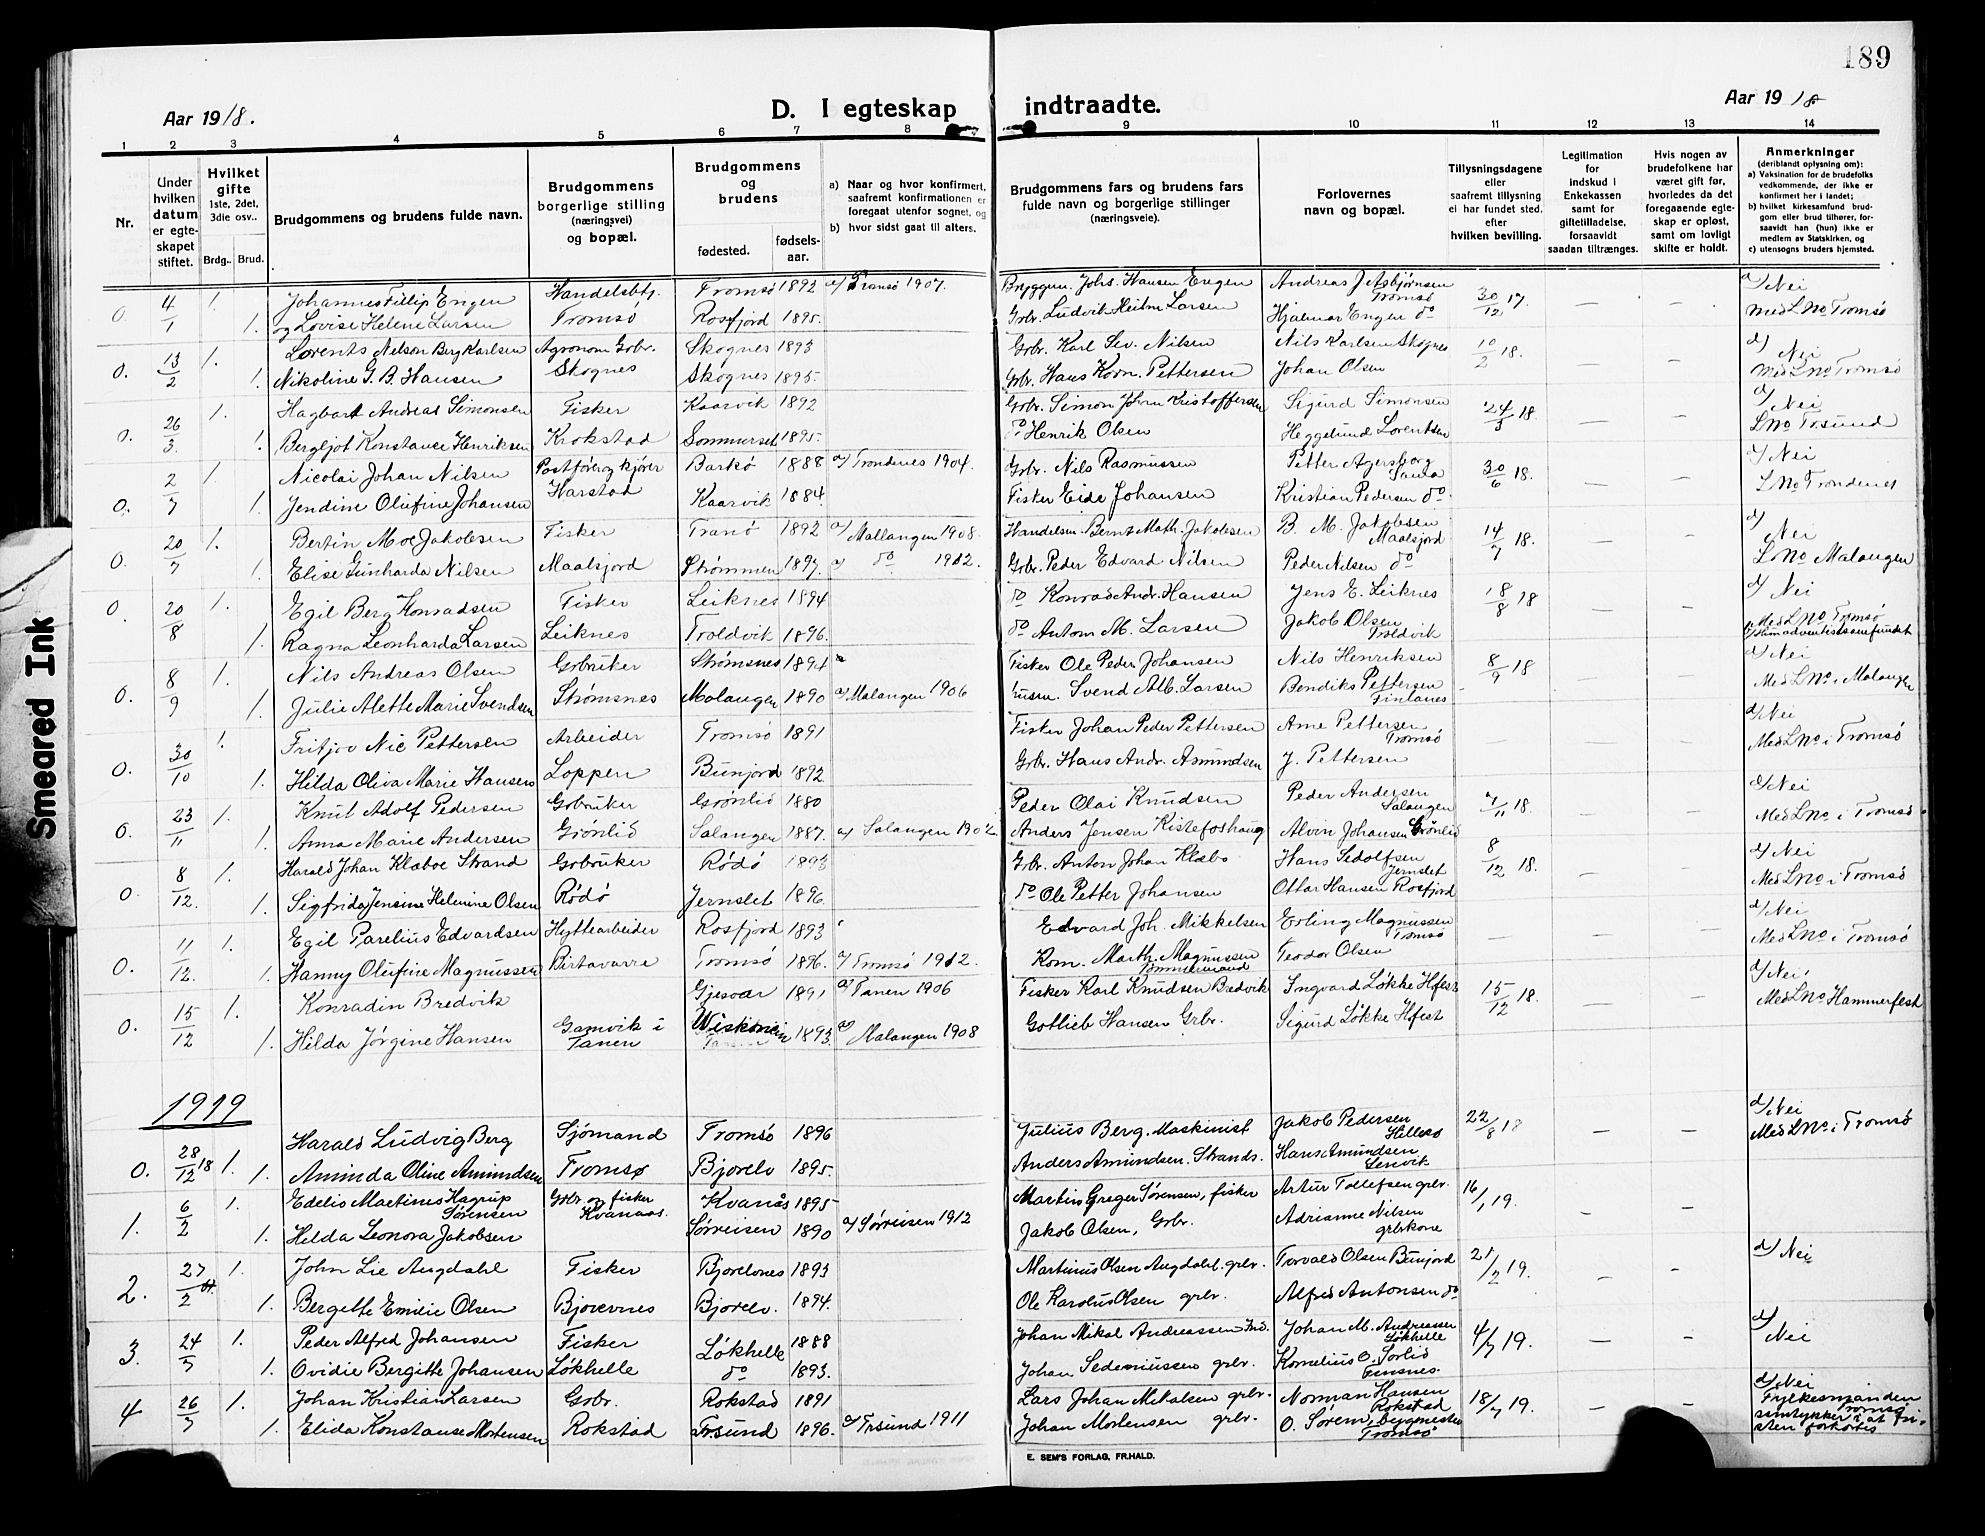 189
Aar 1918.
D. I egteskap indtraadte.
Aar 1918
1 2 3 4 5 6 7 8 9 10 11 12 13 14
Nr.
Under hvilken datum er egteskapet stiftet.
Hvilket gifte 1ste, 2det, 3die osv..
Brdg.. Brud.
Brudgommens og brudens fulde navn.
Brudgommens borgerlige stilling (næringsvei) og bopæl.
Brudgommens og brudens
fødested. fødselsaar.
a) Naar og hvor konfirmert, saafremt konfirmationen er foregaat utenfor sognet, og
b) hvor sidst gaat til alters.
Brudgommens fars og brudens fars fulde navn og borgerlige stillinger (næringsveie).
Forlovernes navn og bopæl.
Tillysningsdagene eller saafremt tillysning ei har fundet sted. efter hvilken bevilling.
Legitimation for indskud i Enkekassen samt for giftetilladelse, forsaavidt saadan tiltrænges.
Hvis nogen av brudefolkene har været gift før, hvorledes da det foregaaende egteskap er opløst, samt om lovligt skifte er holdt.
Anmerkninger (deriblandt oplysning om):
a) Vaksination for de brudefolks vedkommende, der ikke er konfirmert her i landet;
b) hvilket kirkesamfund brudgom eller brud tilhører, forsaavidt han (hun) ikke er medlem av Statskirken, og
c) utensogns bruders hjemsted.
0. 4/1 1. Johannes Fillip Engen Handelsbtj. Tromsø 1892 a/ Tromsø 1907. Bryggem. Johs. Hansen Engen Andreas J. Asbjørnsen Tromsø 30/12 17. — — d/ Nei
1. og Lovise Helene Larsen Tromsø Rosfjord 1895. Gbr. Ludvik Heilm Larsen Hjalmar Engen do Med L.No Tromsø
0. 13/2 1. Lorents Nelson Berg Karlsen Agronom Gbr. Skognes 1893 Gbr. Karl Sev. Nilsen Nils Karlsen Skognes 10/2 18. — — d/ Nei
1. Nikoline G. B. Hansen Skognes Skognes 1895. Gbr. Hans Korn. Pettersen Johan Olsen Med L No Tromsø
0. 26/3 1. Hagbart Andreas Simonsen Fisker Kaarvik 1892 Gbr. Simon Johan Kristoffersen Sigurd Simonsen 24/3 18. — — d/ Nei
1. Bergljot Konstance Henriksen Krokstad Sommerset 1895. do Henrik Olsen Heggelund Lorentsen L No Trsund
0. 2/7 1. Nicolai Johan Nilsen Postfører og kjører Barkø 1888 a/ Trondenes 1904. Gbr. Nils Rasmussen Petter Agersborg 30/6 18. — — d/ Nei
1. Jendine Olufine Johansen Harstad Kaarvik 1884. Fisker Eide Johansen Kristian Pedersen do L No Trondenes
0. 20/7 1. Bertin Moe Jakobsen Fisker Tranø 1892 a/ Mallangen 1908. Handelsm. Bernt Math. Jakobsen B. M. Jakobsen Maalsjord 14/7 18. — — d/ Nei
1. Elise Gunharda Nilsen Maalsjord Strømmen 1897. a/ do 1912. Gbr. Peder Edvard Nilsen Peder Nilsen do L No Malangen
0. 20/8 1. Egil Berg Konradsen Fisker Leiknes 1894 do Konrad Andr. Hansen Jens E. Leiknes 18/8 18 — — d/ Nei
1. Ragna Leonharda Larsen Leiknes Troldvik 1896. do Anton M. Larsen Jakob Olsen Troldvik Med L No Tromsø
0. 8/9 1. Nils Andreas Olsen Gbruker Strømsnes 1894 Fisker Ole Peder Johansen Nils Henriksen 8/9 18 — — d/ Nei
1. Julie Alette Marie Svendsen Strømsnes Malangen 1890 a/ Malangen 1906 husm. Svend Alb. Larsen Bendiks Pettersen Finlanes Med L No i Malangen
0. 30/10 1. Fritjov Nic Pettersen Arbeider Tromsø 1891 Fisker Johan Peder Pettersen Arne Pettersen Tromsø — — — d/ Nei
1. Hilda Oliva Marie Hansen Loppen Bunjord 1892 Gbr. Hans Andr. Asmundsen J. Pettersen Med L No i Tromsø
0. 23/11 1. Knut Adolf Pedersen Gbruker Grønlid 1880 Peder Olai Knudsen Peder Andersen Salangen 7/11 18. — — d/ Nei
1. Anna Marie Andersen Grønlid Salangen 1887. a/ Salangen 1902 Anders Jensen Kistefoshaug Alvin Johansen Grønlid Med L No i Tromsø
0. 8/12. 1. Harald Johan Klæboe Strand Gbruker Rødø 1893 Gbr. Anton Johan Klæbo Hans Sedolfsen Jernslet 8/12 18. — — d/ Nei
1. Sigfrida Jensine Helmine Olsen Rødø Jernslet 1896 do Ole Petter Johansen Ottar Hansen Rosfjord Med L No i Tromsø
0. 11/12. 1. Egil Parelius Edvardsen Hyttearbeider Rosfjord 1893 Edvard Joh. Mikkelsen Erling Magnussen Tromsø — — — d/ Nei
1. Hanny Olufine Magnussen Birtavarre Tromsø 1896. a/ Tromsø 1912 Kom. Marth. Magnussen Tømmermand Teodor Olsen Med L No i Tromsø
0. 15/12 1. Konradin Bredvik Gjesvær 1891 a/ Tanen 1906 Fisker Karl Knudsen Bredvik Ingvard Løkke Hfest 15/12 18. — — d/ Nei
1. Hilda Jørgine Hansen Gamvik i Tanen Wiskonsin 1893. a/ Malangen 1908 Gotlieb Hansen Grbr. Sigurd Løkke Hfest Med L No Hammerfest
1919
0. 28/12 18 1. Harald Ludvig Berg Sjømand Tromsø 1896 Julius Berg. Maskinist Jakob Pedersen Hillesø 22/8 18 — — d/ Nei
1. Aminda Oline Amundsen Tromsø Bjorelv 1895. Anders Amundsen. Strands. Hans Amundsen Lenvik Med L No i Tromsø
1. 6/2 1. Edelis Martines Hagrup Sørensen Grbr og fisker Kvanaas. Kvanås 1895 Martin Greger Sørensen, fisker Artur Tollefsen grbr. 16/1 19. — —
1. Hilda Leonora Jakobsen Sørreisen 1890 a/ Sørreisen 1912 Jakob Olsen, Grbr. Adrianne Nilsen grbrkone
2. 27/2 1. John Lie Augdahl Fisker Bjorelvnes 1893 Martinius Olsen Augdahl. grbr. Torvald Olsen Bunjord 21/2 19. — — d/ Nei
1. Bergitte Emilie Olsen Bjorevnes Bjorelv. 1894. Ole Karolus Olsen grbr. Alfred Antonsen do
3. 24/7 1. Peder Alfred Johansen Fisker Løkhelle 1888 Johan Mikal Andreassen Ind. Johan M. Andreassen Løkhelle 4/7 19. — — d/ Nei
1. Ovidie Bergitte Johansen Løkhelle do 1893. Johan Sedeniussen grbr. Kornelius O. Sorlid Finsnes.
4 26/7 1. Johan Kristian Larsen Gbr. Rokstad 1891 Lars Johan Mikalsen grbr. Norman Hansen Rokstad 18/7 19. — — d/ Nei
1. Elida Konstanse Mortensen Rokstad Trsund 1896. a/ Trsund 1911 Johan Mortensen grbr. O. Sörem, bergmester Tromsø Fylkesmanden Tromsø samtykker i at fristen forkortes
E. SEM'S FORLAG, FR.HALD.
Smeared Ink